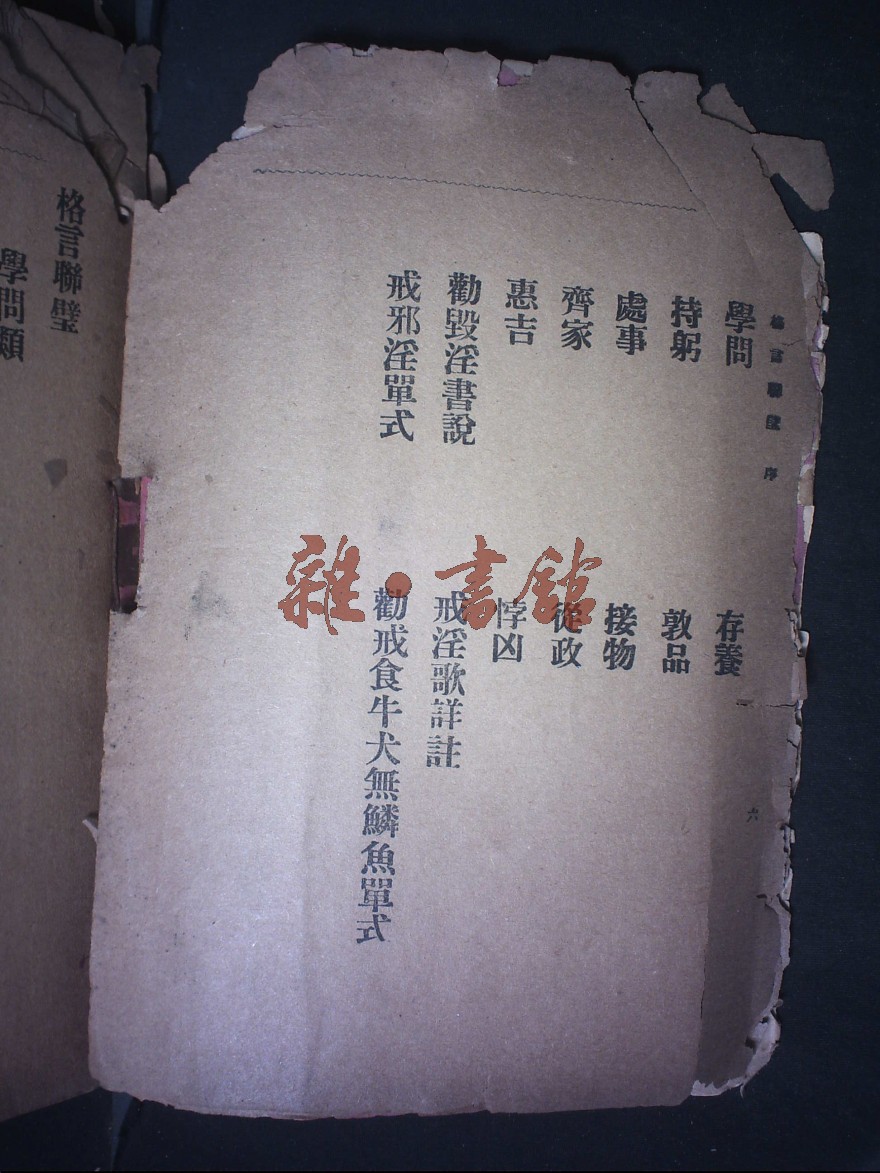 格言聯璧 序
六
學問 存養
持躬 敦品
處事 接物
齊家 從政
惠吉 悖凶
勸毀淫書說 戒淫歌詳註
戒邪淫單式 勸戒食牛犬無鱗魚單式
格言聯璧
學問類
雜·書館